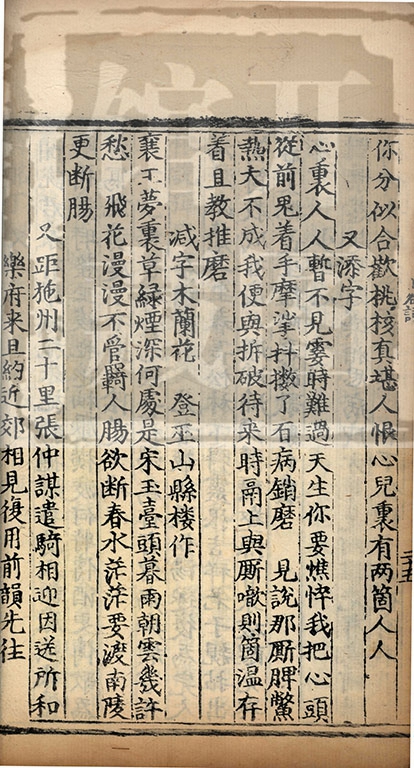 你分似合歡桃核真堪人恨心兒裏有两箇人人
又添字
心裏人人暫不見霎時難過天生你要憔悴我把心頭
從前鬼着手摩挲抖擻了石病銷磨 見說那厮脾鱉
熱大不成我便與拆破待来時鬲上與厮噷則箇温存
着且教推磨
减字木蘭花 登巫山縣楼作
襄王夢裏草綠煙深何處是宋玉臺頭暮雨朝雲幾許
愁 飛花漫漫不管羇人腸欲断春水茫茫要渡南陵
更断腸
又距施州二十里張仲謀遣騎相迎因送所和
樂府来且約近郊相見復用前韻先往